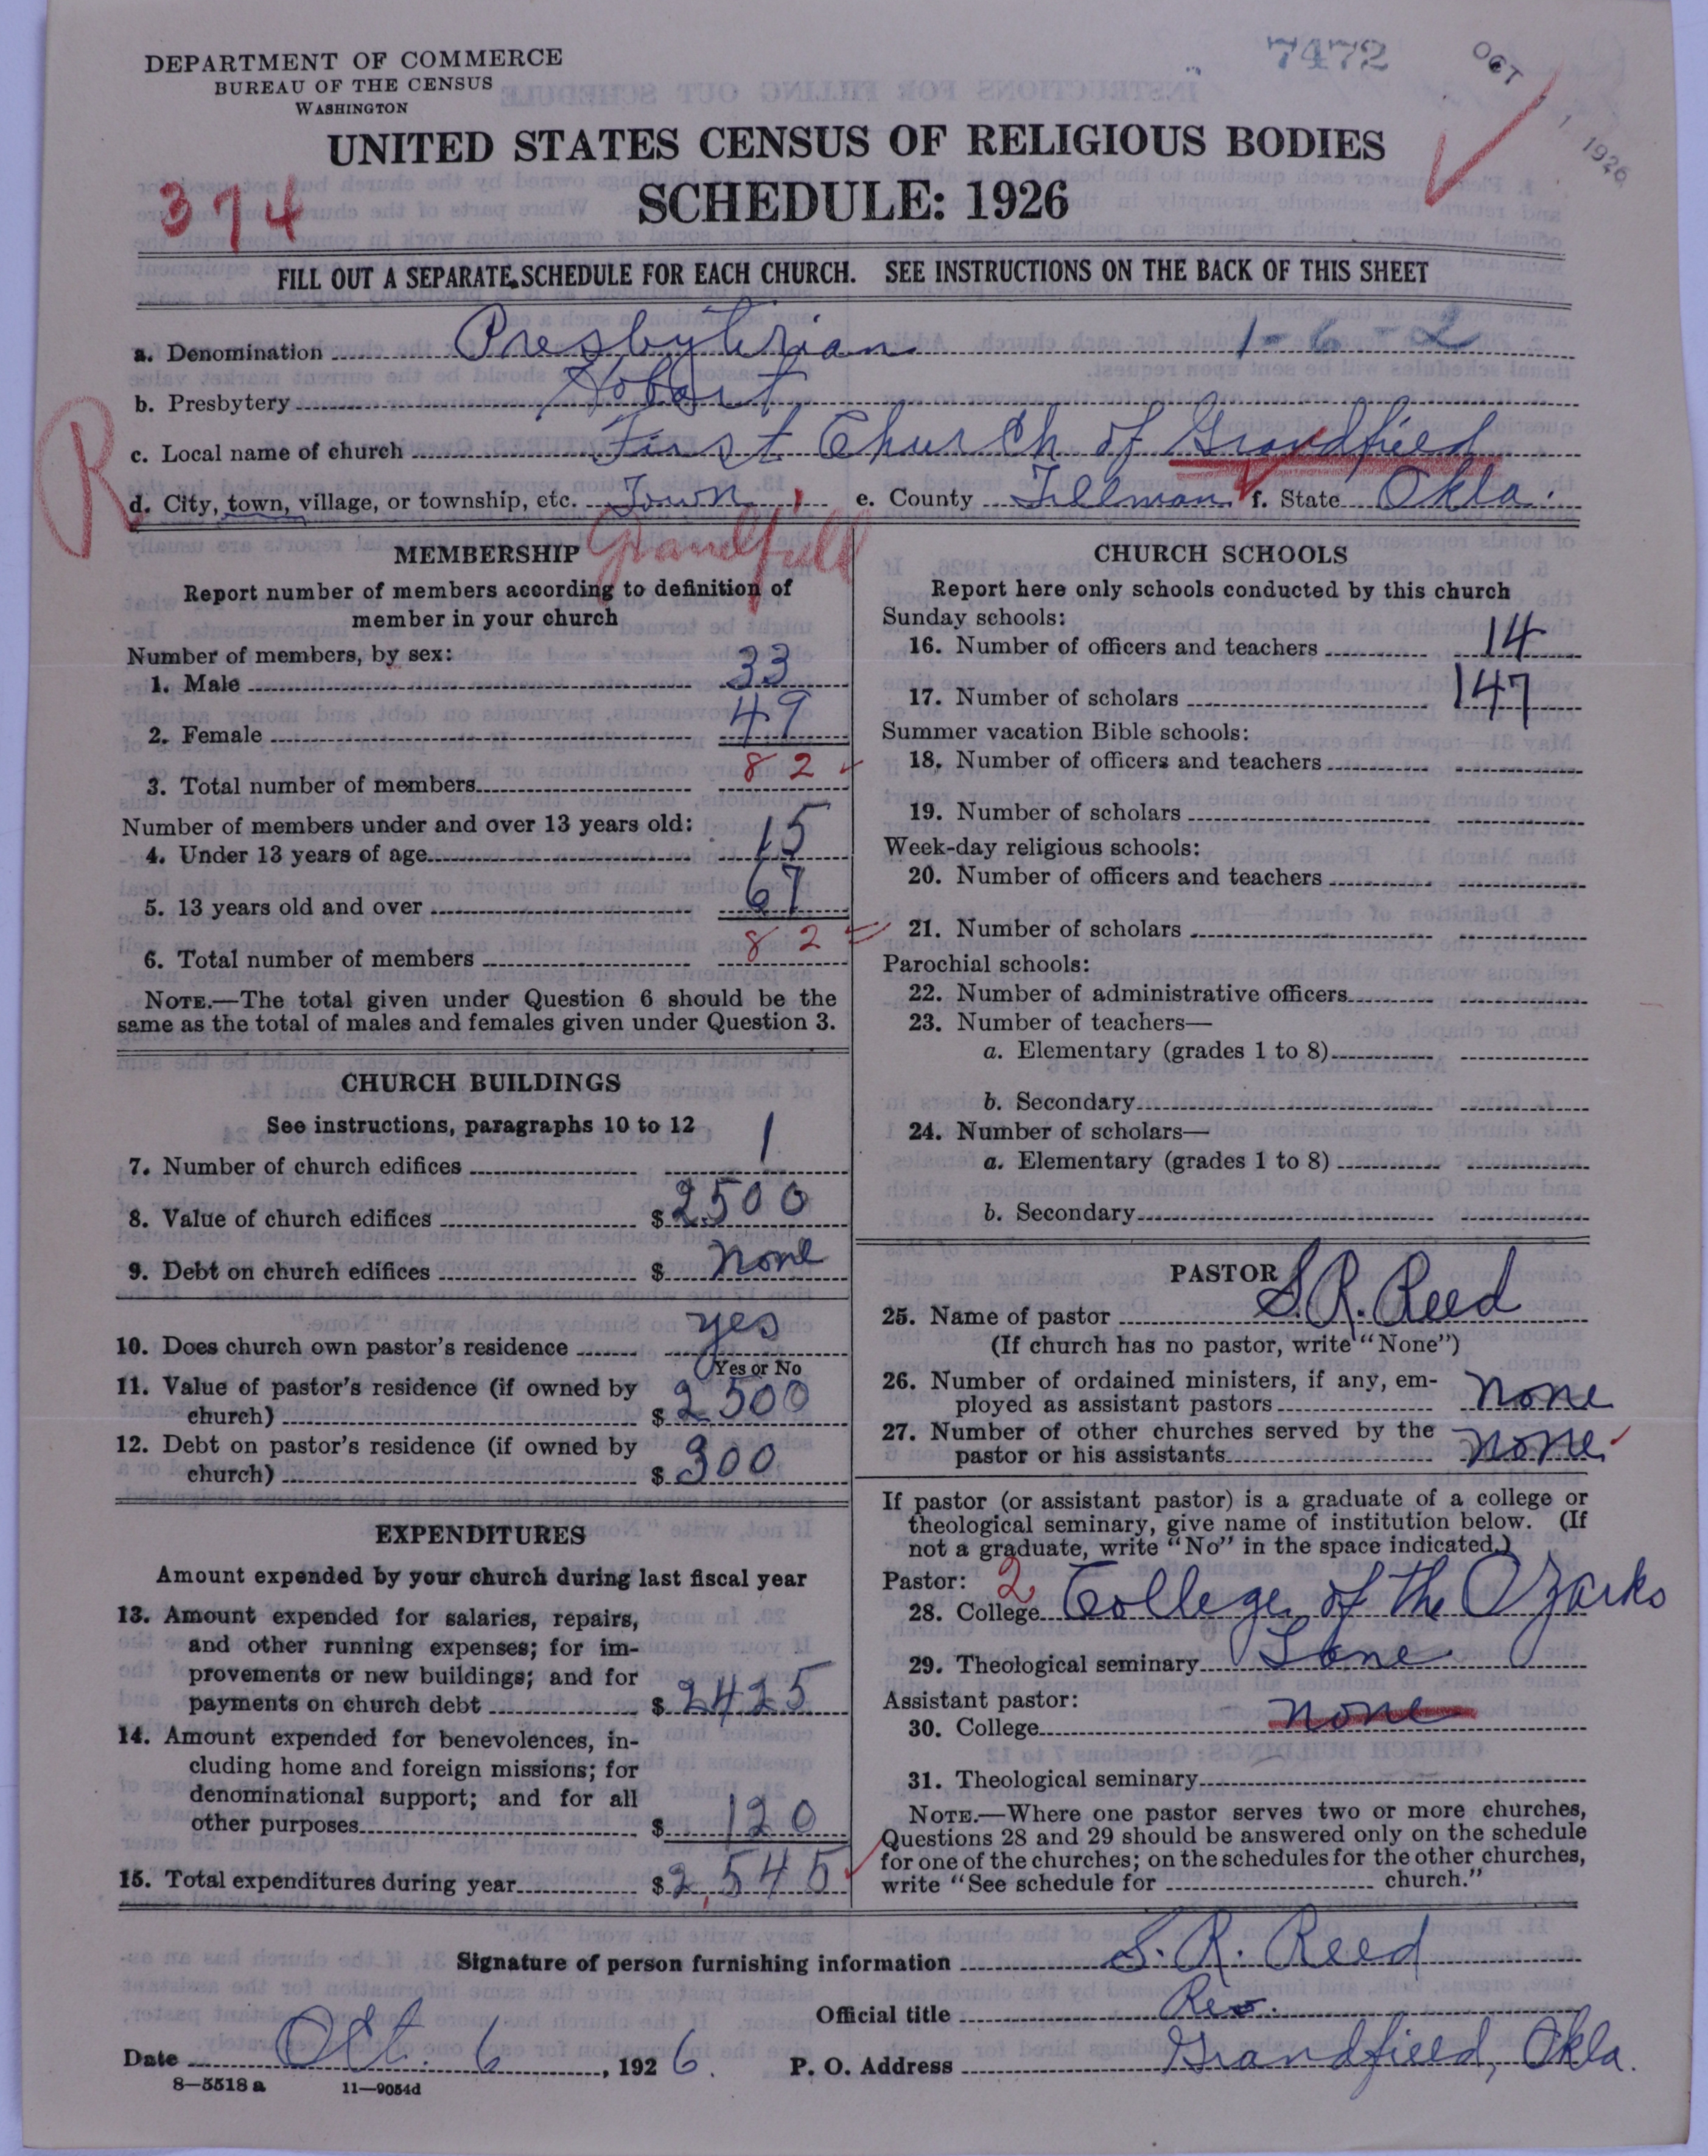 DEPARTMENT OF COMMERCE
BUREAU OF THE CENSUS
WASHINGTON
7472
OCT 1 1926
UNITED STATES CENSUS OF RELIGIOUS BODIES
374
SCHEDULE: 1926
FILL OUT A SEPARATE SCHEDULE FOR EACH CHURCH. SEE INSTRUCTIONS ON THE BACK OF THIS SHEET
a. Denomination Presbyterian 1-6-2
b. Presbytery Hobart
R
c. Local name of church First Church of Grandfield
d. City, town, village, or township, etc. Town e. County Tillman f. State Okla.
Grandfield
MEMBERSHIP
Report number of members according to definition of
member in your church
Number of members, by sex:
1. Male 33
2. Female 49
3. Total number of members 82
Number of members under and over 13 years old:
4. Under 13 years of age 15
5. 13 years old and over 67
6. Total number of members 82
NOTE.—The total given under Question 6 should be the
same as the total of males and females given under Question 3.
CHURCH BUILDINGS
See instructions, paragraphs 10 to 12
7. Number of church edifices 1
8. Value of church edifices $ 2500
9. Debt on church edifices $ none
10. Does church own pastor's residence yes
Yes or No
11. Value of pastor's residence (if owned by
church) $ 2500
12. Debt on pastor's residence (if owned by
church) $ 300
EXPENDITURES
Amount expended by your church during last fiscal year
13. Amount expended for salaries, repairs,
and other running expenses; for im-
provements or new buildings; and for
payments on church debt $ 2425
14. Amount expended for benevolences, in-
cluding home and foreign missions; for
denominational support; and for all
other purposes $ 120
15. Total expenditures during year $ 2,545
CHURCH SCHOOLS
Report here only schools conducted by this church
Sunday schools:
16. Number of officers and teachers 14
17. Number of scholars 147
Summer vacation Bible schools:
18. Number of officers and teachers
19. Number of scholars
Week-day religious schools:
20. Number of officers and teachers
21. Number of scholars
Parochial schools:
22. Number of administrative officers
23. Number of teachers—
a. Elementary (grades 1 to 8)
b. Secondary
24. Number of scholars—
a. Elementary (grades 1 to 8)
b. Secondary
PASTOR
25. Name of pastor S.R. Reed
(If church has no pastor, write "None")
26. Number of ordained ministers, if any, em-
ployed as assistant pastors none
27. Number of other churches served by the
pastor or his assistants none
If pastor (or assistant pastor) is a graduate of a college or
theological seminary, give name of institution below. (If
not a graduate, write "No" in the space indicated.)
Pastor: 2
28. College College of the Ozarks
29. Theological seminary Lane
Assistant pastor:
30. College none
31. Theological seminary
NOTE.—Where one pastor serves two or more churches,
Questions 28 and 29 should be answered only on the schedule
for one of the churches; on the schedules for the other churches,
write "See schedule for church."
Signature of person furnishing information S. R. Reed
Official title Rev.
Date Oct. 6, 1926. P. O. Address Grandfield, Okla.
8—5518 a 11—9054d